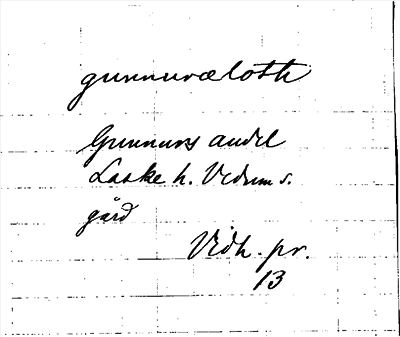 gunnuræloth
Gunnurs andel
Laske h. Vedum s.
gård
Vidh. pr.
13